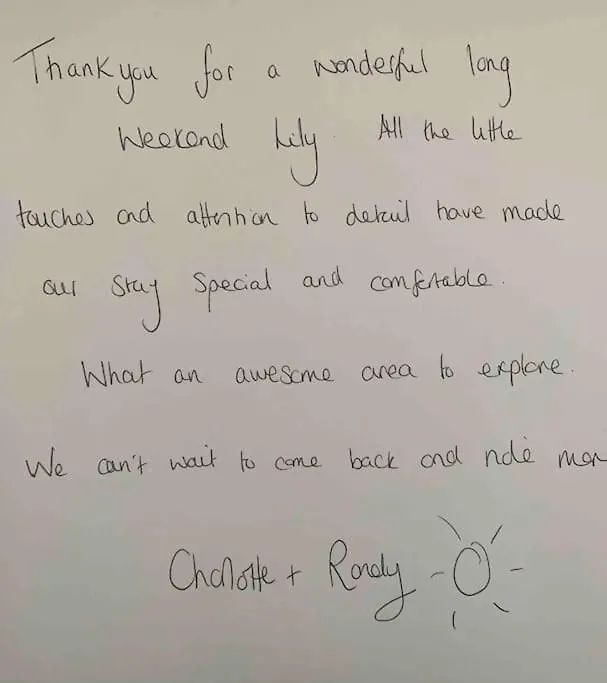 Thank you for a wonderful long
Weekend Lily. All the little
touches and attention to detail have made
our stay special and comfortable.
What an awesome area to explore.
We can't wait to come back and ride mor
Charlotte + Randy